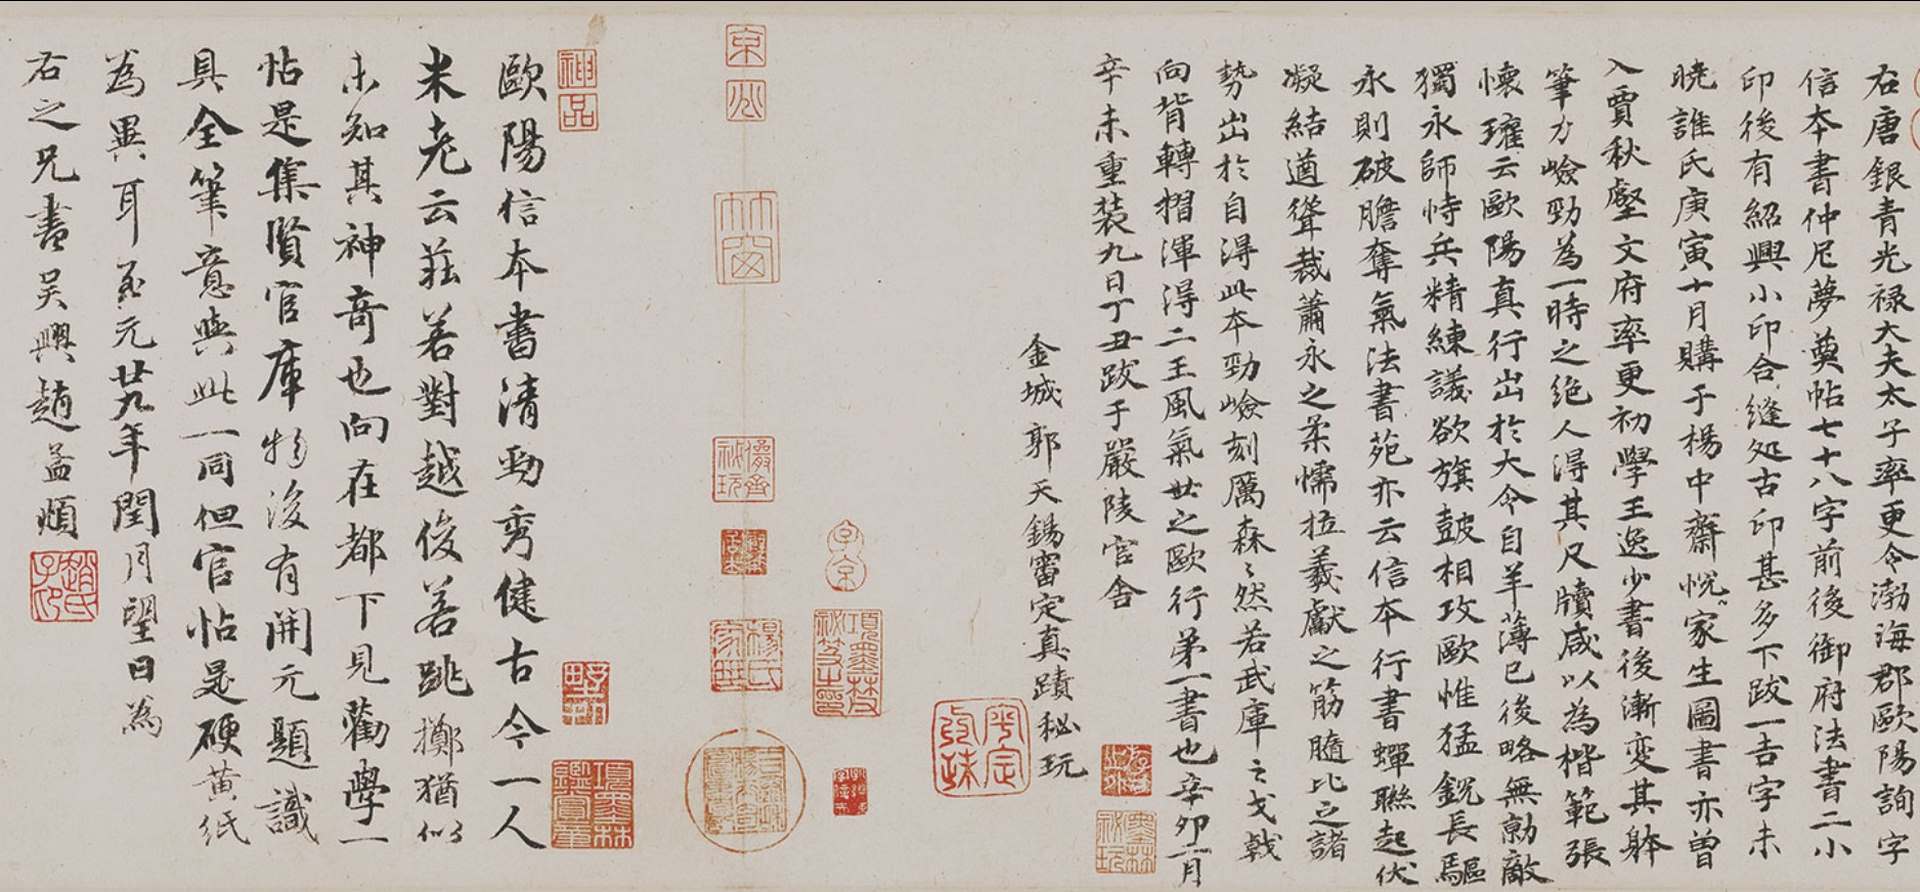 右唐銀青光禄大夫太子率更令渤海郡歐陽詢字
信本書仲尼夢奠帖七十八字前後御府法書二小
印後有紹興小印合縫处古印甚多下跋一吉字未
曉誰氏庚寅十月購于楊中齋悦家生圖書亦曾
入賈秋壑文府率更初學王逸少書後漸变其躰
筆力嶮勁為一時之绝人得其尺牘咸以為楷範張
懷瓘云歐陽真行出於大令自羊薄已後略無勍敵
獨永師恃兵精練議欲旗鼓相攻歐惟猛鋭長驅
永則破膽奪氣法書苑亦云信本行書蟬聯起伏
凝結遒聳裁蕭永之柔懦拉羲獻之筋髓比之諸
勢出於自得此本勁嶮刻厲森〻然若武庫之戈戟
向背轉摺渾得二王風氣世之歐行第一書也辛卯二月
辛未重装九日丁丑跋于嚴陵官舍
金城郭天錫審定真蹟秘玩
平定
神品
京兆
項墨林鑑賞章
墨林祕玩
項墨林祕笈之印
楊氏家藏
歐陽信本書清勁秀健古今一人
米老云莊若對越俊若跳擲猶似
未知其神奇也向在都下見勸學一
帖是集賢官庫物後有開元題識
具全筆意與此一同但官帖是硬黄紙
為異耳至元廿九年閏月望日為
右之兄書吳興趙孟頫
趙氏子昂